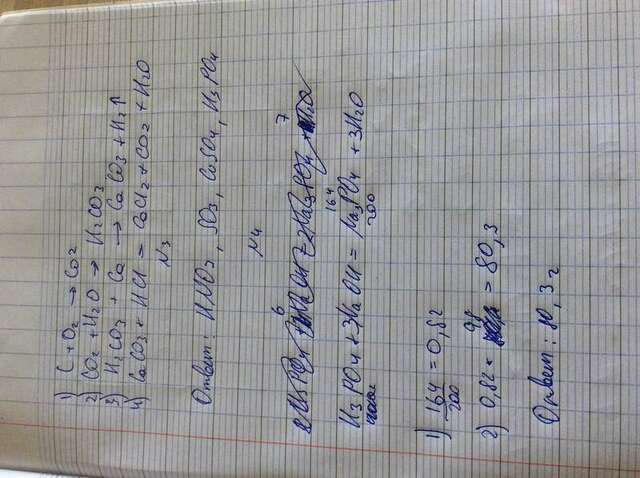 1) C + O2 → CO2
2) CO2 + H2O → H2CO3
3) H2CO3 + Ca → CaCO3 + H2↑
4) CaCO3 + HCl = CaCl2 + CO2 + H2O
N3
Ответ: HNO3, SO3, CaSO4, H3PO4
N4
164
H3PO4 + 3NaOH = Na3PO4 + 3H2O
200
1) 164/200 = 0,82
2) 0,82 · 98 = 80,3
Ответ: 80,3 г